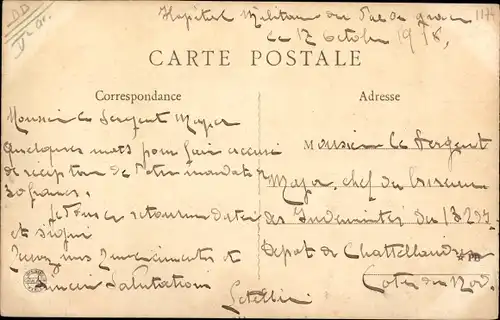 Hopital Militaire du Val de grace
le 12 Octobre 1918,
CARTE POSTALE
Correspondance
Adresse
Monsieur le Sergent Major
quelques mots pour faire accusé
de reception de votre mandat
30 francs.
retourne
et signé
Recevez mes Remerciements et
Sincère Salutations
Monsieur le Sergent
Major, chef du bureau
des Indemnités du
Depot de Chattellaudren
Cotes du Nord.